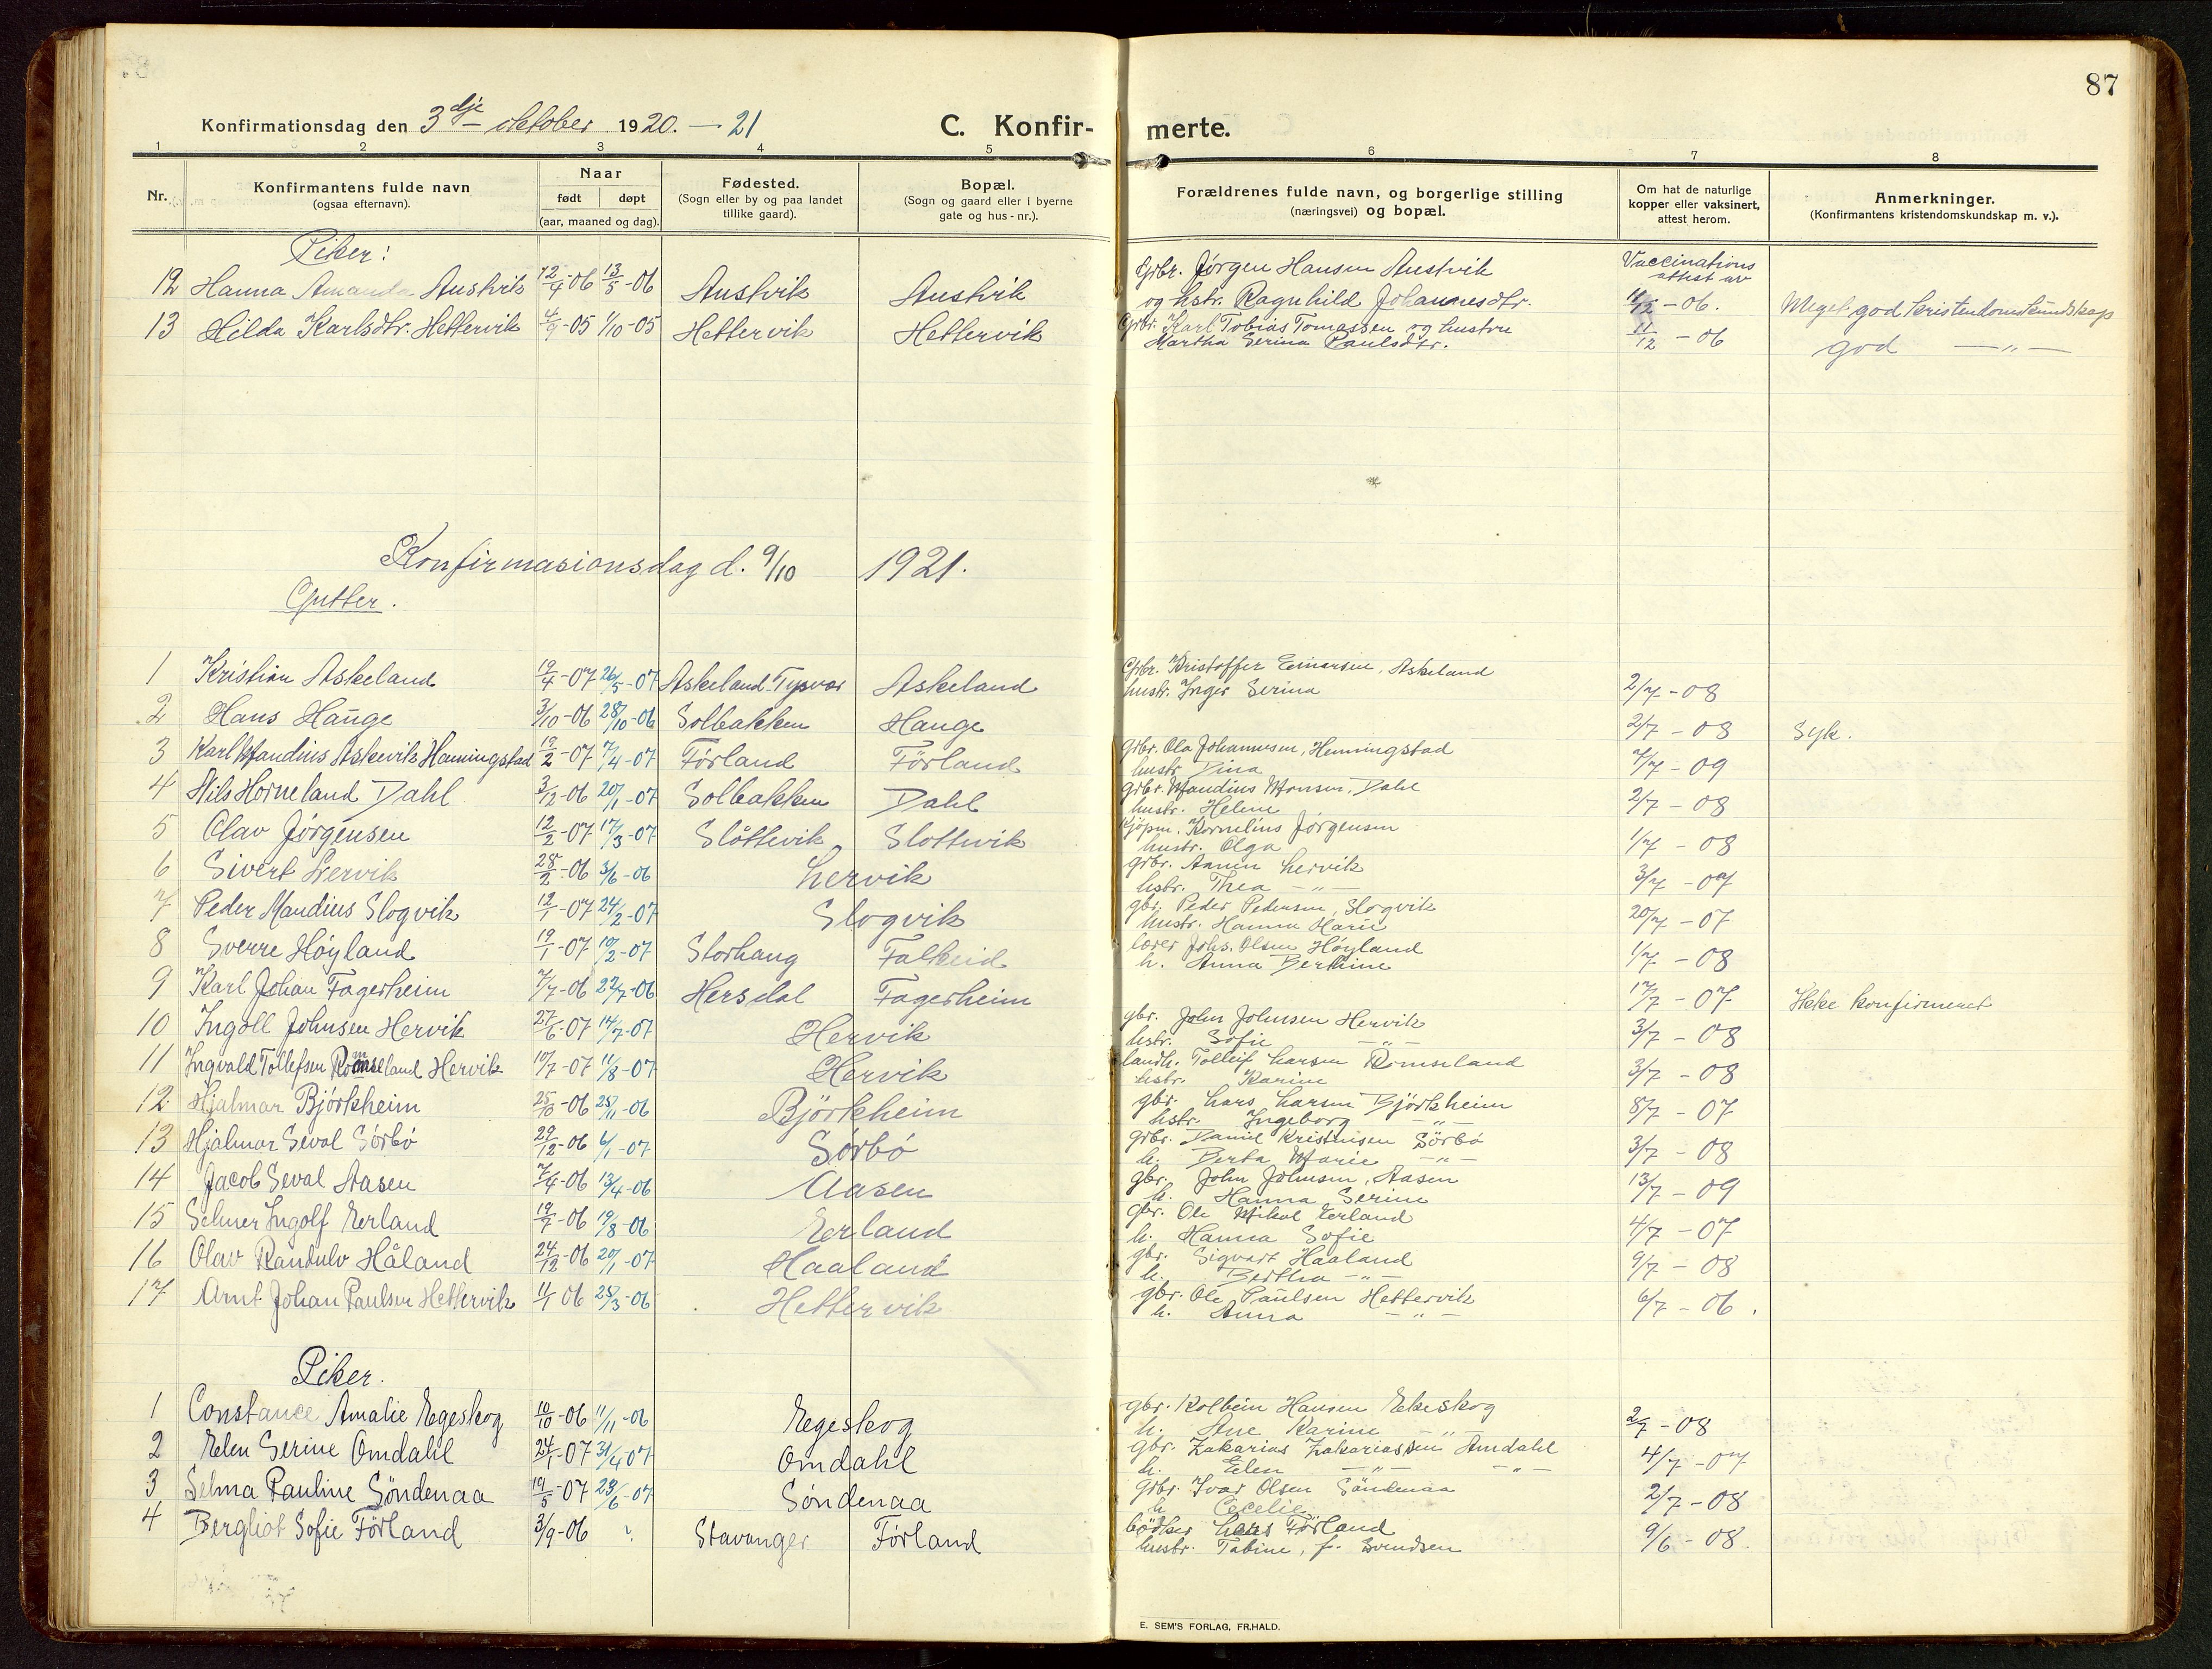 87
Konfirmationsdag den 3dje oktober 1920. – 21 C. Konfir- merte.
1 2 3 4 5 6 7 8
Nr. Konfirmantens fulde navn (ogsaa efternavn). Naar født døpt (aar, maaned og dag). Fødested. (Sogn eller by og paa landet tillike gaard). Bopæl. (Sogn og gaard eller i byerne gate og hus-nr.). Forældrenes fulde navn, og borgerlige stilling (næringsvei) og bopæl. Om hat de naturlige kopper eller vaksinert, attest herom. Anmerkninger. (Konfirmantens kristendomskundskap m. v.).
Piker: Vaccinations attest av
12 Hanna Amanda Austvik 12/4-06 13/5-06 Austvik Austvik Grbr. Jørgen Hansen Austvik og hstr. Ragnhild Johannesdtr. 11/12 – 06. Meget god kristendomskundskap
13 Hilda Karlsdtr. Hettervik 4/9-05 1/10-05 Hettervik Hettervik Grbr. Karl Tobias Tomassen og hustru Martha Serina Paulsdtr. 11/12 – 06 god —"—
Konfirmasionsdag d. 9/10 1921.
Gutter.
1 Kristian Askeland 19/4-07 26/5-07 Askeland Tysvær Askeland Grbr. Kristoffer Einarsen, Askeland hustr. Inger Serina 2/7-08
2 Hans Hauge 3/10-06 28/10-06 Solbakken Hauge 2/7-08 Syk.
3 Karl Mandius Askevik Hemmingstad 19/2-07 7/4-07 Førland Förland Grbr. Ola Johannesen, Hemmingstad hustr Dina 7/7-09
4 Nils Horneland Dahl 3/12-06 20/1-07 Solbakken Dahl grbr. Mandius Monsen, Dahl hustr. Helene 2/7-08
5 Olav Jørgensen 12/2-07 17/3-07 Slöttevik Slottevik Kjøpm. Kornelius Jørgensen hustr. Olga 1/7-08
6 Sivert Lervik 28/2-06 3/6-06 Lervik grbr. Lervik hstr. Thea —"— 3/7-07
7 Peder Mandius Slogvik 12/1-07 24/2-07 Slogvik gbr. Peder Pedersen, Slogvik hustr. Hanna Marie 20/7-07
8 Sverre Høyland 19/1-07 10/2-07 Storhaug Falkeid lærer Johs. Olsen Høyland h. Anna Berthine 1/7-08
9 Karl Johan Fagerheim 7/7-06 22/7-06 Hersdal Fagerheim 17/7-07 Ikke konfirmeret
10 Ingoll Johnsen Hervik 27/6-07 14/7-07 Hervik gbr. John Johnsen Hervik hstr. Sofie —"— 3/7-08
11 Ingvald Tollefsen Romseland Hervik 10/7-07 11/8-07 Hervik landh. Tolleif Larsen Romseland hstr. Karine 3/7-08
12. Hjalmar Bjørkheim 25/10-06 25/11-06 Björkheim gbr. Lars Larsen Björkheim hstr. Ingeborg —"— 8/7-07
13 Hjalmar Seval Sørbø 29/12-06 6/1-07 Sørbø grbr. Daniel Kristensen Sörbø h. Berta Marie —"— 3/7-08
14 Jacob Seval Aasen 7/4-06 13/4-06 Aasen gbr. John Johnsen, Aasen h. Hanna Serine 13/7-09
15 Selmer Ingolf Eerland 19/7-06 19/8-06 Eerland gbr. Ole Mikal Eerland h. Hanna Sofie 4/7-07
16 Olav Randulv Håland 24/12-06 20/1-07 Haaland gbr. Sigvart Haaland h. Bertha —"— 9/7-08
17 Arnt Johan Paulsen Hettervik 11/1 06 25/3-06 Hettervik gbr. Ole Paulsen Hettervik h. Anna —"— 6/7-06.
Piker.
1 Constance Amalie Egeskog 10/10-06 11/11-06 Egeskog gbr. Kolbein Hansen Ekeskog h. Ane Karine —"— 2/7-08
2 Elen Serine Omdahl 24/1-07 31/4 07 Omdahl gbr. Zakarias Zakariassen Amdahl h. Elen —"— —"— 4/7-07
3 Selma Pauline Söndenaa 19/5-07 23/6-07 Søndenaa grbr. Ivar Olsen Söndenaa h Cecelie 2/7-08
4 Bergliot Sofie Förland 3/9-06 ? Stavanger Førland bödker Lars Förland hustr. Tabine, f. Svendsen 9/6-08.
E. SEM'S FORLAG, FR.HALD.